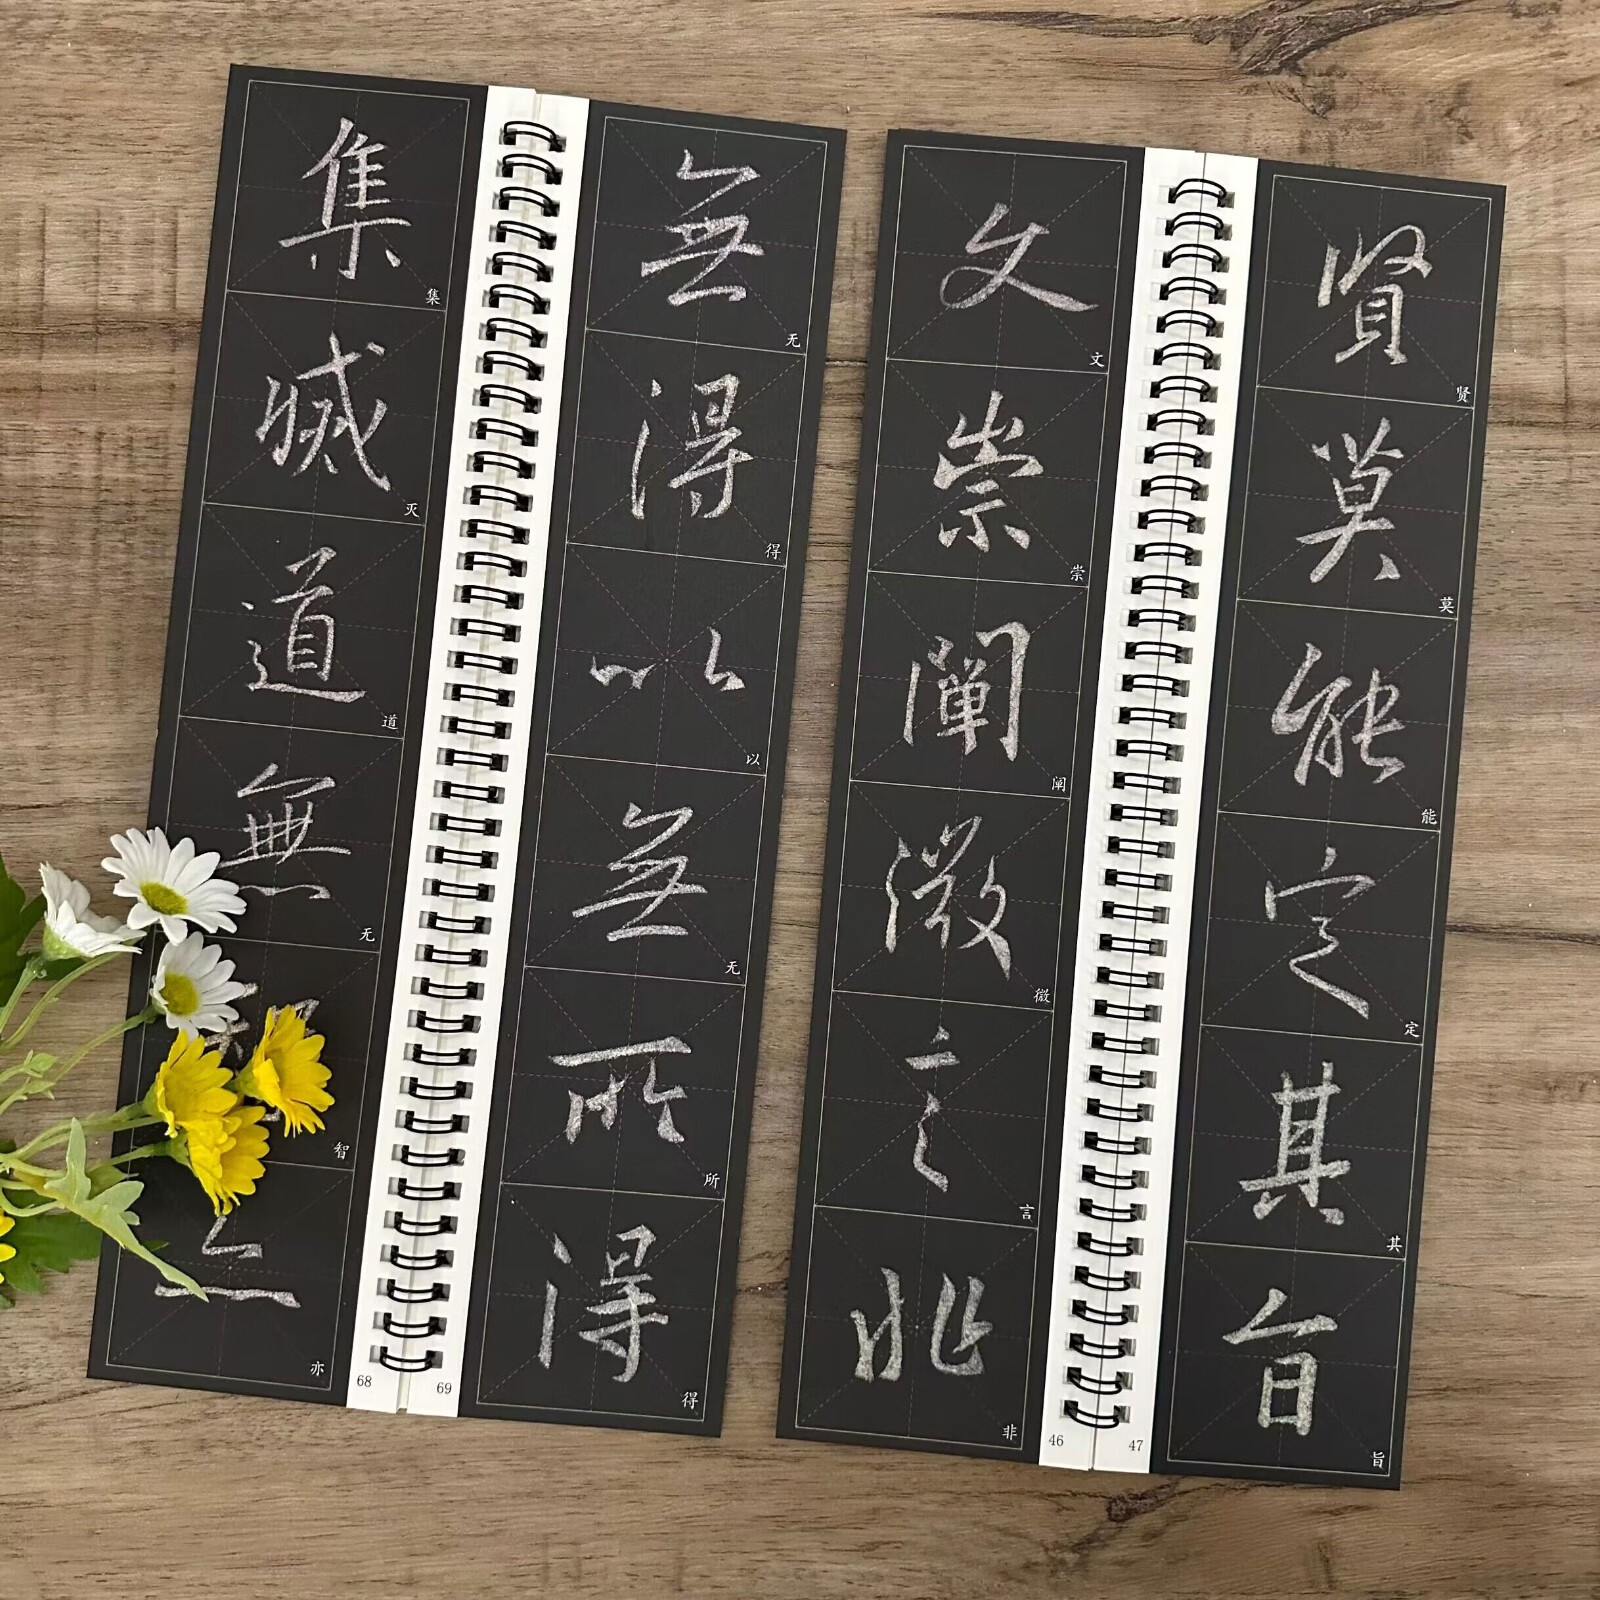 集
集
滅
灭
道
道
無
无
智
亦
亦
68
無
无
得
得
以
以
無
无
所
所
得
得
69
文
文
崇
崇
闡
阐
微
微
言
言
非
非
46
賢
贤
莫
莫
能
能
定
定
其
其
旨
旨
47